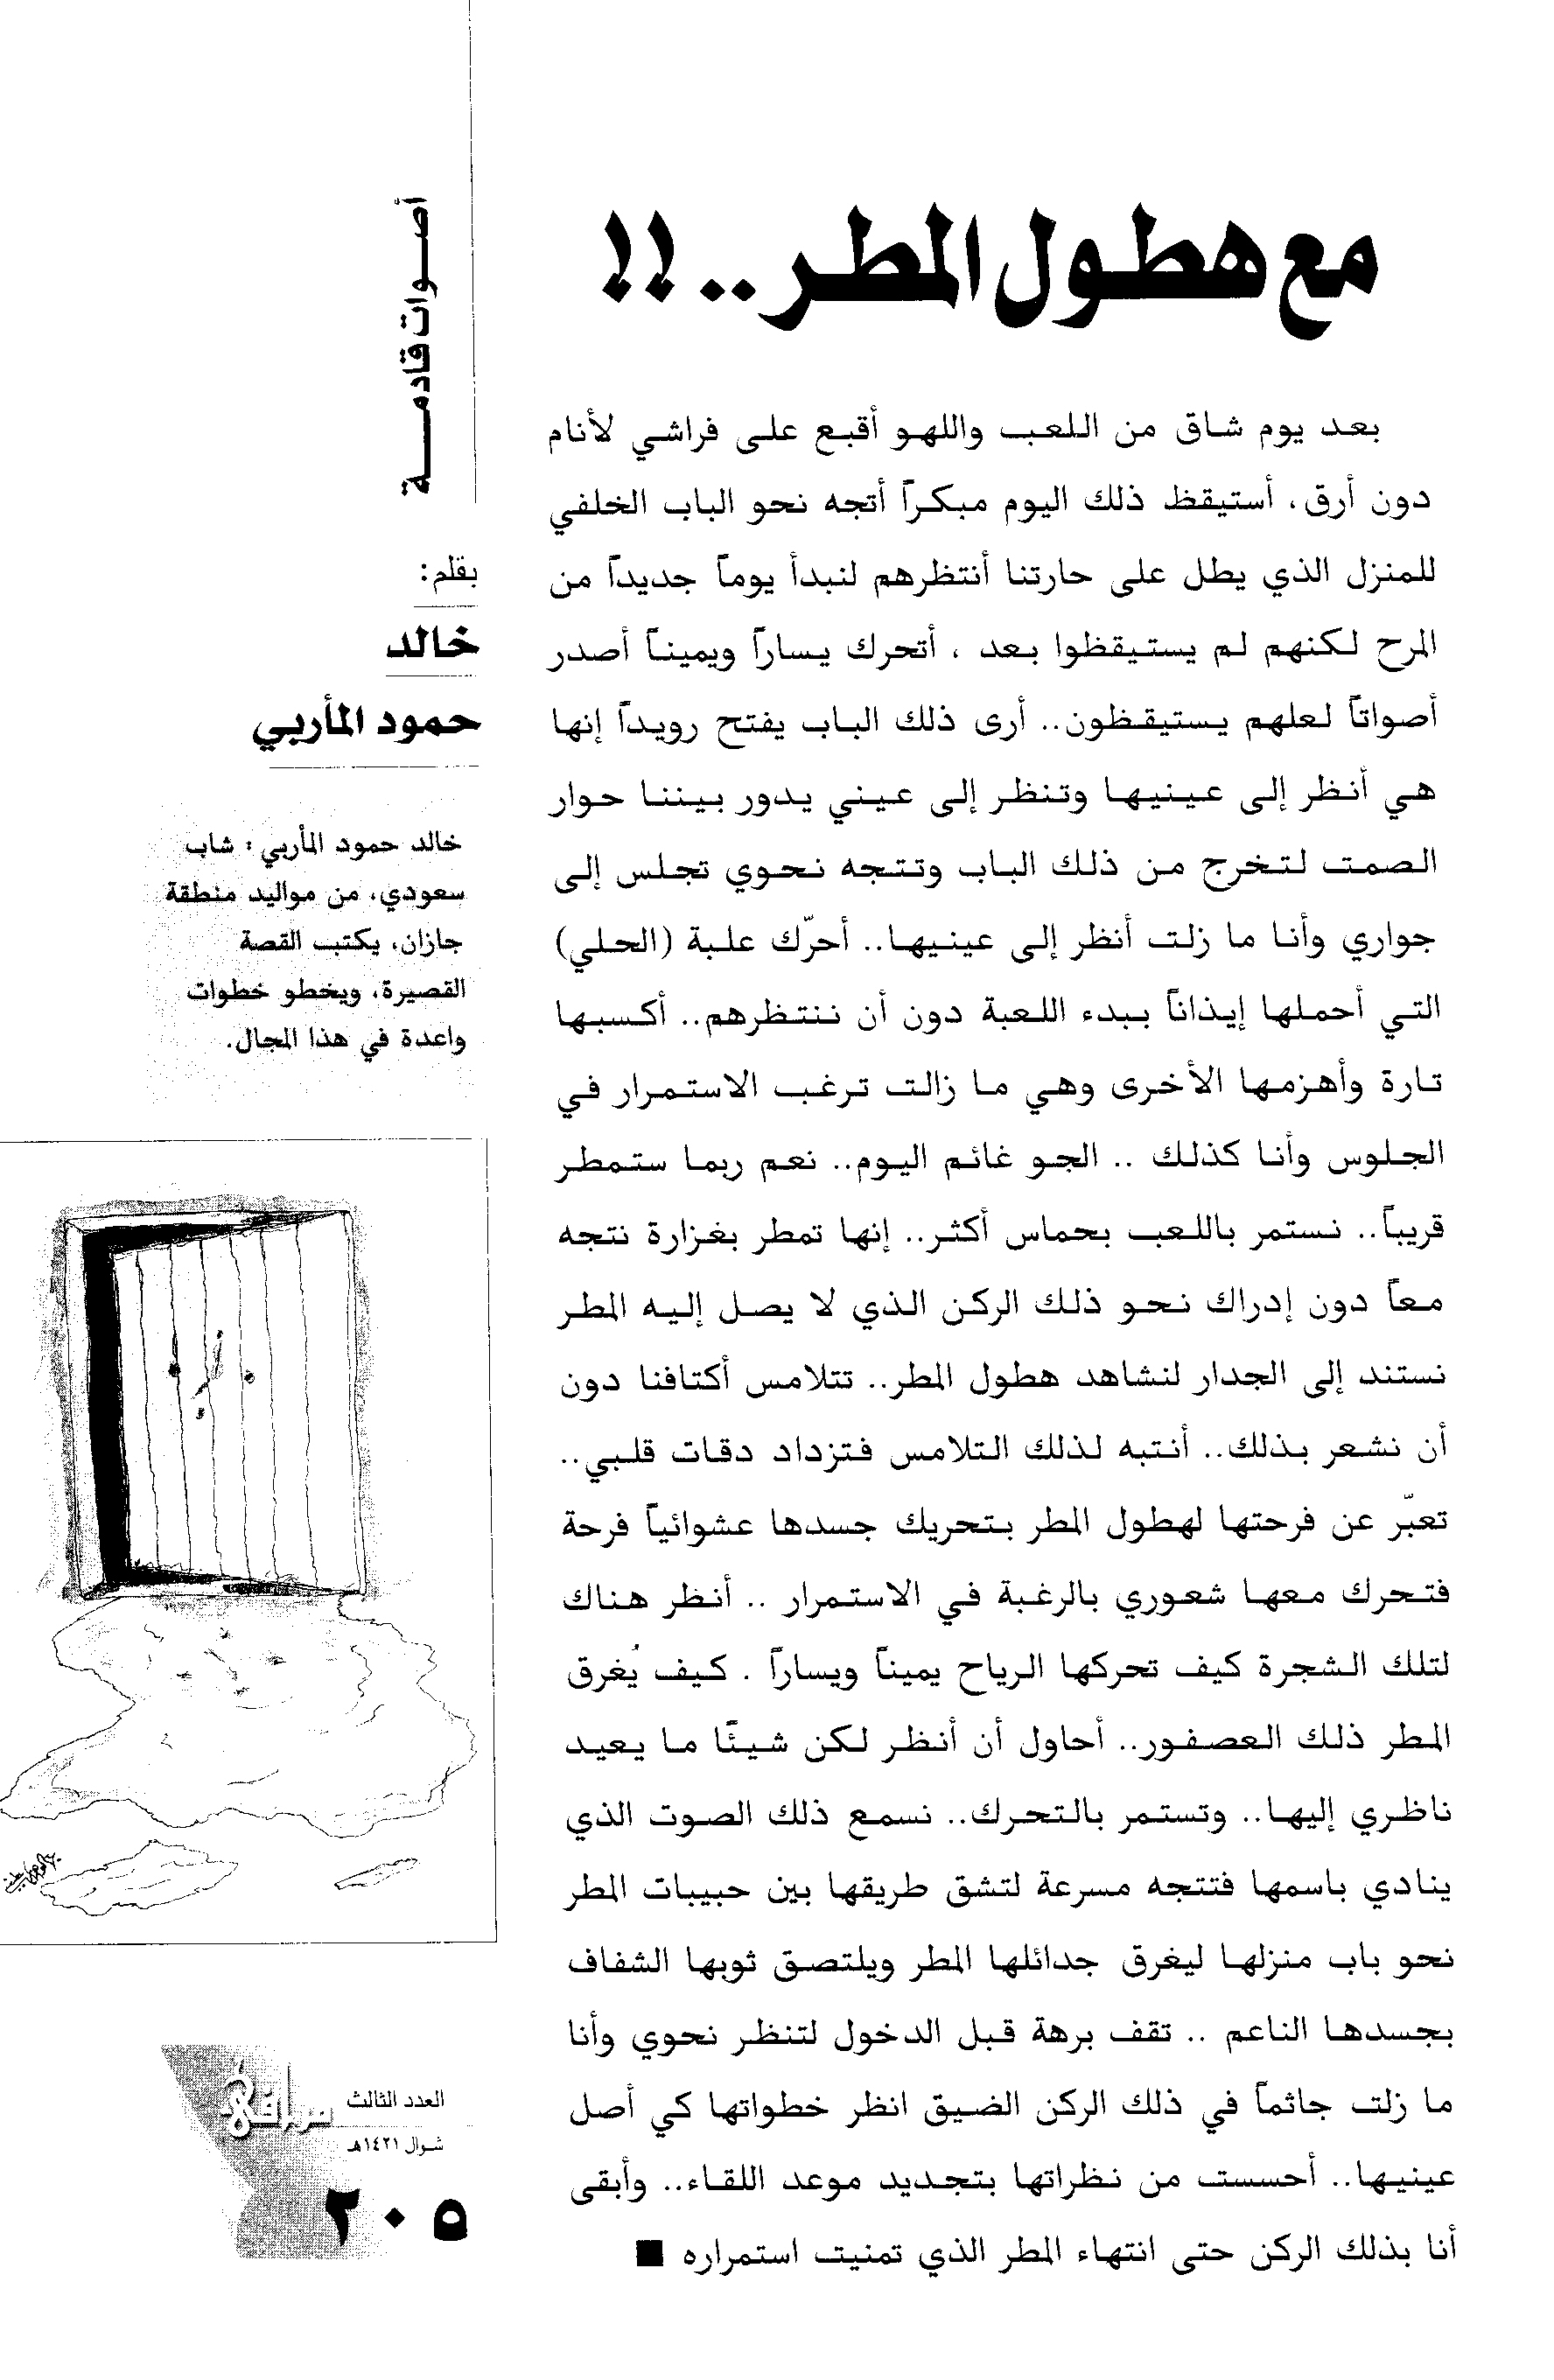 أصوات قادمة
مع هطول المطر..!!
بقلم:
خالد
حمود المأربي
خالد حمود المأربي: شاب
سعودي، من مواليد منطقة
جازان، يكتب القصة
القصيرة، ويخطو خطوات
واعدة في هذا المجال.
بعد يوم شاق من اللعب واللهو أقبع على فراشي لأنام
دون أرق، أستيقظ ذلك اليوم مبكراً أتجه نحو الباب الخلفي
للمنزل الذي يطل على حارتنا أنتظرهم لنبدأ يوماً جديداً من
المرح لكنهم لم يستيقظوا بعد ، أتحرك يساراً ويميناً أصدر
أصواتاً لعلهم يستيقظون.. أرى ذلك الباب يفتح رويداً إنها
هي أنظر إلى عينيها وتنظر إلى عيني يدور بيننا حوار
الصمت لتخرج من ذلك الباب وتتجه نحوي تجلس إلى
جواري وأنا ما زلت أنظر إلى عينيها.. أحرّك علبة (الحلي)
التي أحملها إيذاناً ببدء اللعبة دون أن ننتظرهم.. أكسبها
تارة وأهزمها الأخرى وهي ما زالت ترغب الاستمرار في
الجلوس وأنا كذلك .. الجو غائم اليوم.. نعم ربما ستمطر
قريباً.. نستمر باللعب بحماس أكثر.. إنها تمطر بغزارة نتجه
معاً دون إدراك نحو ذلك الركن الذي لا يصل إليه المطر
نستند إلى الجدار لنشاهد هطول المطر.. تتلامس أكتافنا دون
أن نشعر بذلك.. أنتبه لذلك التلامس فتزداد دقات قلبي..
تعبّر عن فرحتها لهطول المطر بتحريك جسدها عشوائياً فرحة
فتحرك معها شعوري بالرغبة في الاستمرار .. أنظر هناك
لتلك الشجرة كيف تحركها الرياح يميناً ويساراً . كيف يُغرق
المطر ذلك العصفور.. أحاول أن أنظر لكن شيئًا ما يعيد
ناظري إليها.. وتستمر بالتحرك.. نسمع ذلك الصوت الذي
ينادي باسمها فتتجه مسرعة لتشق طريقها بين حبيبات المطر
نحو باب منزلها ليغرق جدائلها المطر ويلتصق ثوبها الشفاف
بجسدها الناعم .. تقف برهة قبل الدخول لتنظر نحوي وأنا
ما زلت جاثماً في ذلك الركن الضيق انظر خطواتها كي أصل
عينيها.. أحسست من نظراتها بتجديد موعد اللقاء.. وأبقى
أنا بذلك الركن حتى انتهاء المطر الذي تمنيت استمراره ■
مرافئ
العدد الثالث
شوال ١٤٢١هـ
٢٠٥